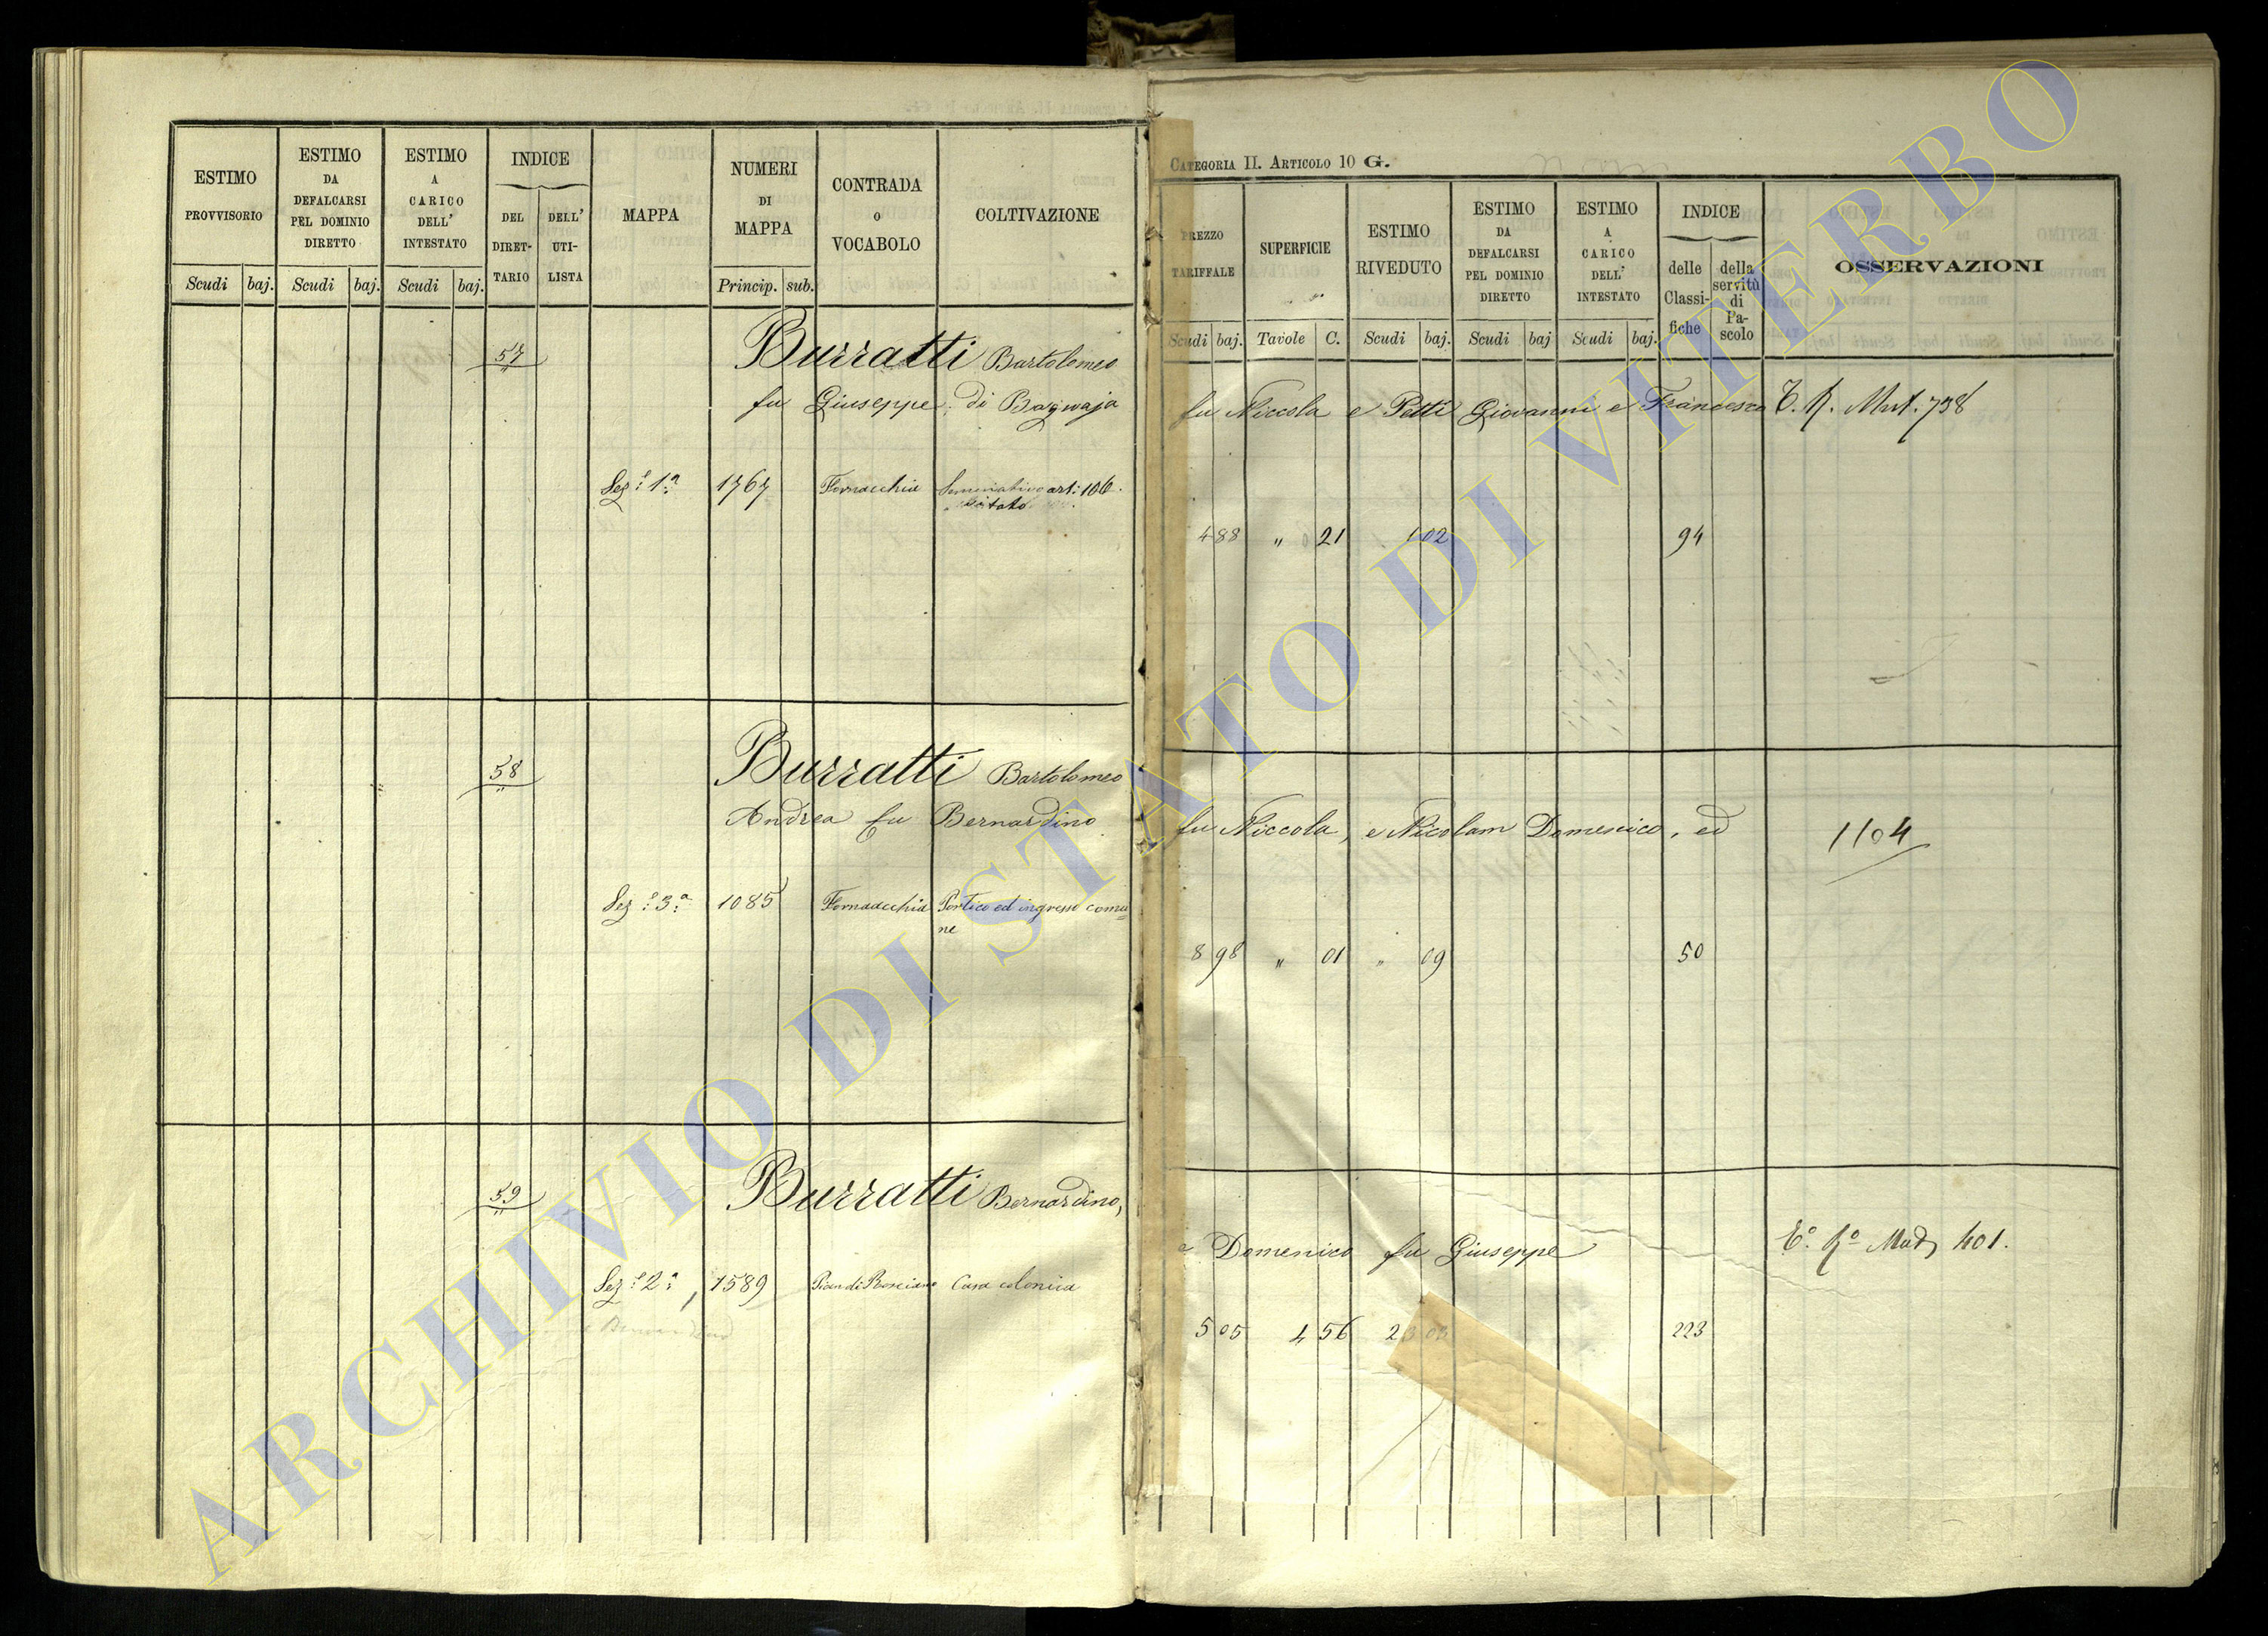 ESTIMO PROVVISORIO
Scudi baj.
ESTIMO DA DEFALCARSI PEL DOMINIO DIRETTO
Scudi baj.
ESTIMO A CARICO DELL' INTESTATO
Scudi baj.
INDICE
DEL DIRET-TARIO
DELL' UTI-LISTA
MAPPA
NUMERI DI MAPPA
Princip. sub.
CONTRADA O VOCABOLO
COLTIVAZIONE
57 Burratti Bartolomeo
fu Giuseppe, di Bagnaja
Sez.e 1.a 1767 Fornacchia Seminativo art: 106
citato
58 Burratti Bartolomeo
Andrea fu Bernardino
Sez.e 3.a 1085 Fornacchia Portico ed ingresso comu=
ne
59 Burratti Bernardino,
Sez.e 2.a 1589 Casa colonica
CATEGORIA II. ARTICOLO 10 G.
PREZZO TARIFFALE
Scudi baj.
SUPERFICIE
Tavole C.
ESTIMO RIVEDUTO
Scudi baj.
ESTIMO DA DEFALCARSI PEL DOMINIO DIRETTO
Scudi baj
ESTIMO A CARICO DELL' INTESTATO
Scudi baj.
INDICE
delle Classi-fiche
della servitù di Pa-scolo
OSSERVAZIONI
fu Niccola e Petti Giovanni e Francesco T. R. Mut. 738
4 88 " 21 1 02 94
fu Niccola, e Nicolam Domenico, ed 1104
8 98 " 01 " 09 50
e Domenico fu Giuseppe T.o R.o Mod 401.
5 05 4 56 23 03 223
ARCHIVIO DI STATO DI VITERBO